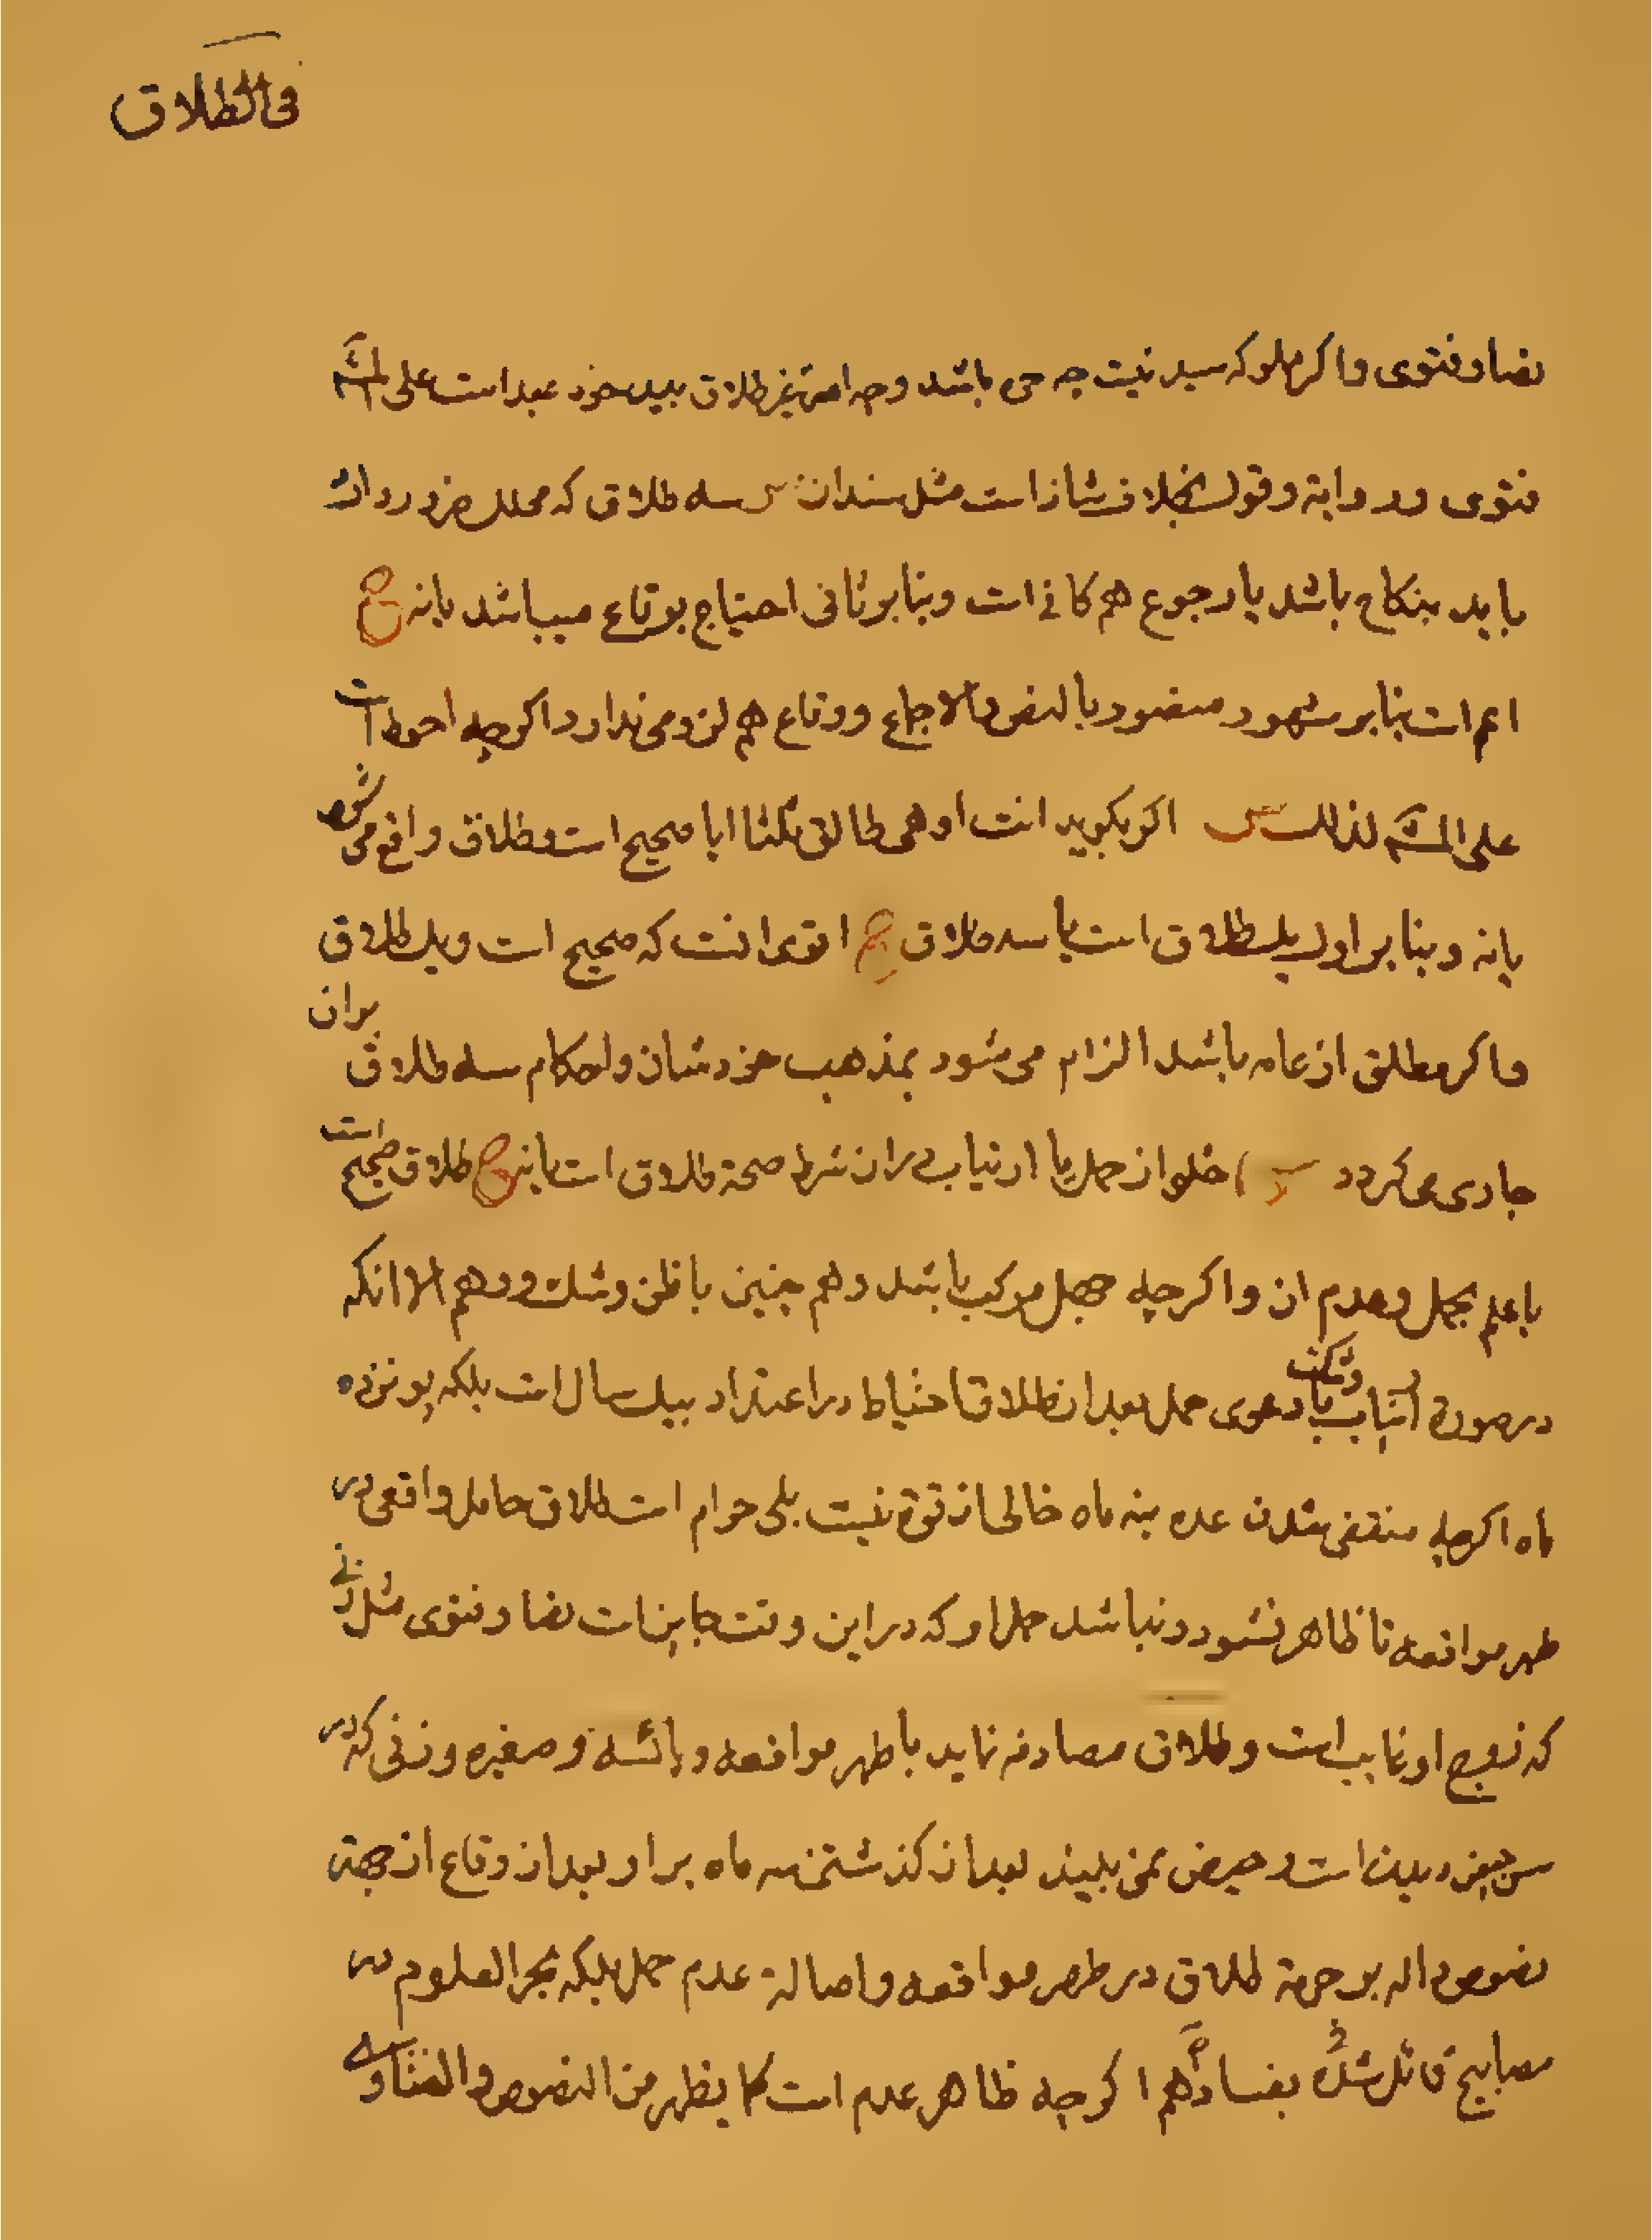 فی الطلاق
نصا و فتوی و اکر مملوکه سید نیست چه حره باشد و چه امه غیر طلاق بید خود عبد است علی المشهور
فتوی و روایة و قول بخلاف شاذ است مثل سند ان س سه طلاق که محلل ضرور دارد
باید بنکاح باشد یا رجوع هم کافی است و بنابر ثانی احتیاج بوقاع میباشد یا نه ج
اعم است بنابر مشهور منصور بالنص والاجماع و وقاع هم لزومی ندارد اکرچه احوط است
علی المشهور لذلک س اکر بکوید انت او هی طالق ثلثا ایا صحیح است و طلاق واقع می شود
یا نه و بنابر اول یک طلاق است یا سه طلاق ج اقوی انست که صحیح است و یک طلاق
و اکر مطلق از عامه باشد الزام می شود بمذهب خودشان و احکام سه طلاق بران
جاری می کردد س خلو از حمل یا ارتیاب دران شرط صحة طلاق است یا نه ج طلاق صحیح است
با علم بحمل و عدم ان و اکرچه جهل مرکب باشد و هم چنین با ظن و شک و وهم الا انکه
در صورة ارتیاب با دعوی حمل بعد از طلاق احتیاط در اعتداد بیک سال است بلکه پونزده
ماه اکرچه منقضی شدن عده بنه ماه خالی از قوة نیست بلی حرام است طلاق حامل واقعی در
طهر مواقعه تا ظاهر نشود و نباشد حمل او که در این وقت جایز است نصا و فتوی مثل زنی
که زوج او غایب است و طلاق مصادفه نماید با طهر مواقعه و یائسه و صغیره و زنی که در
سن حیض دیدن است و حیض نمی بیند بعد از کذشتن سه ماه براو بعد از وقاع از جهة
نصوص داله بر حرمة طلاق در طهر مواقعه و اصالة عدم حمل بلکه بحر العلوم در
مصابیح قائل شده بفساد هم اکرچه ظاهر عدم است کما یظهر من النصوص و الفتاوی